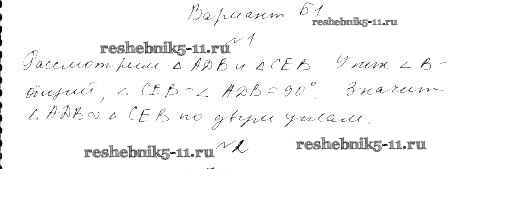 Вариант Б1
reshebnik5-11.ru
№1
reshebnik5-11.ru
Рассмотрим △ ADB и △ CEB У них ∠ B-
общий, ∠ CEB = ∠ ADB = 90°. Значит
△ ADB ∾ △ CEB по двум углам.
№2
reshebnik5-11.ru
reshebnik5-11.ru